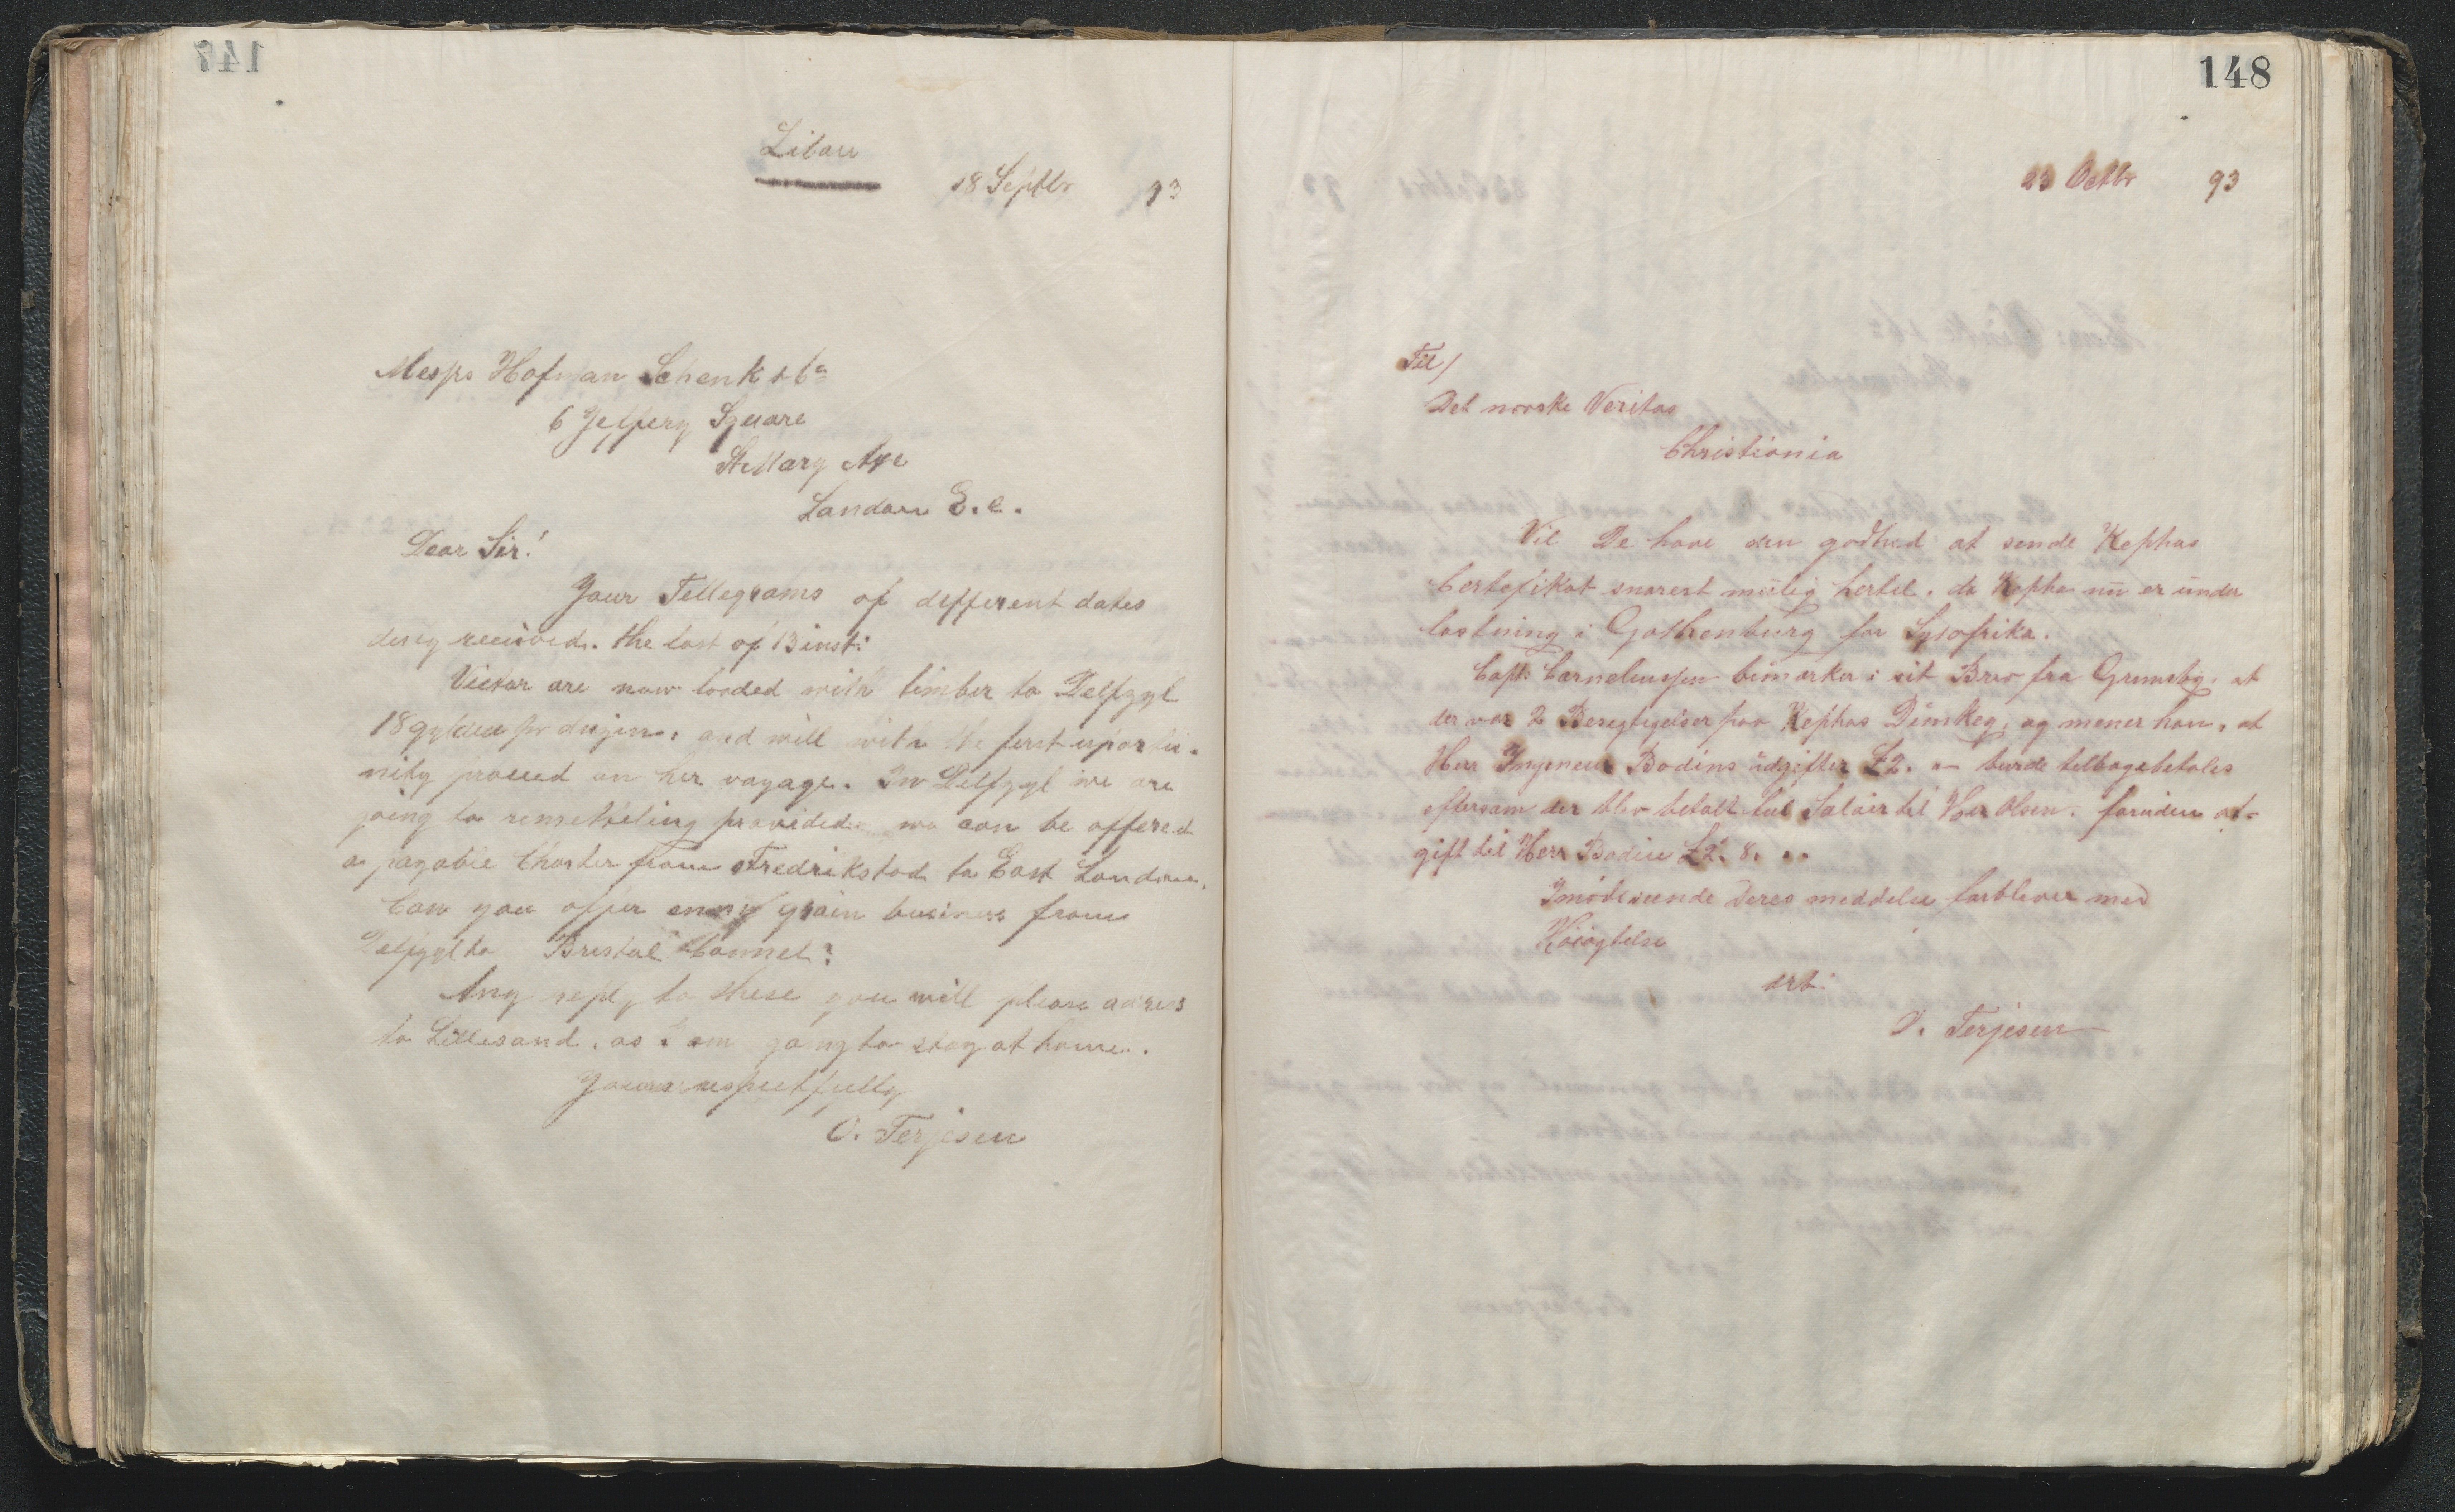 147
Libau
18 Septbr 93
Messrs Hofman Schenk & Co
6 Jeffery Square
St Mary Axe
London E.C.
Dear Sir!
Your Tellegrams of different dates
received. the last of 13 inst:
Victor are now loaded with timber to Delfzyl
18 gylden pr and will with the first uportu-
nity proceed on her voyage. In Delfzyl we are
going to provided we can be offered
a payable Charter from Fredrikstad to East London.
Can you offer enny grain business from
Delfzyl to Bristol Cannel?
Any reply to these you will please adress
to Lillesand, as I am going to stay at home.
Yours respectfully
O. Terjesen
148
23 Octbr 93
Til/
Det norske Veritas
Christiania
Vil De have den godhed at sende Kephas
Certefikat snarest mulig hertil. da Kephas nu er under
lastning i Gothenburg for Sydafrika.
Capt: Corneliussen bemærker i sit Brev fra Grimsby. at
der var 2 Besigtigelser paa Kephas og mener han, at
Herr Ingeneur Bodins udgifter £2. " " burde tilbagebetales
eftersom der blev betalt ful Salair til Her Olsen. foruden at-
gift til Herr Bodin £2. 8. " "
Imødeseende Deres meddelse forbliver med
Høiagtelse
ert:
O. Terjesen